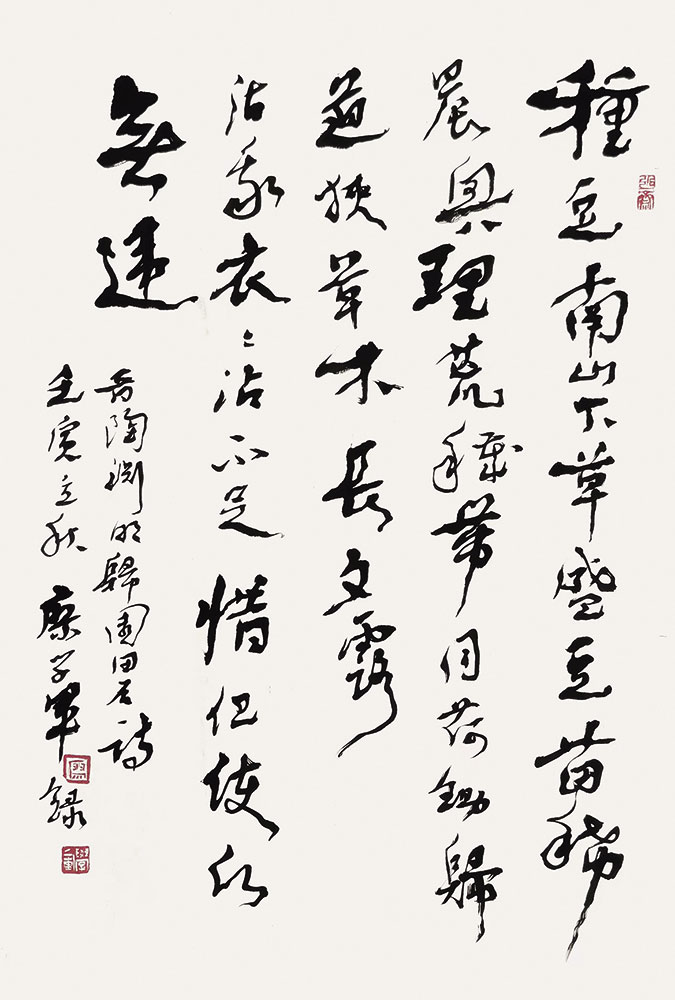 種豆南山下草盛豆苗稀
晨興理荒穢帶月荷鋤歸
道狹草木長夕露
沾我衣〻沾不足惜但使願
無違
晉陶淵明歸園田居詩
壬寅立秋學軍錄